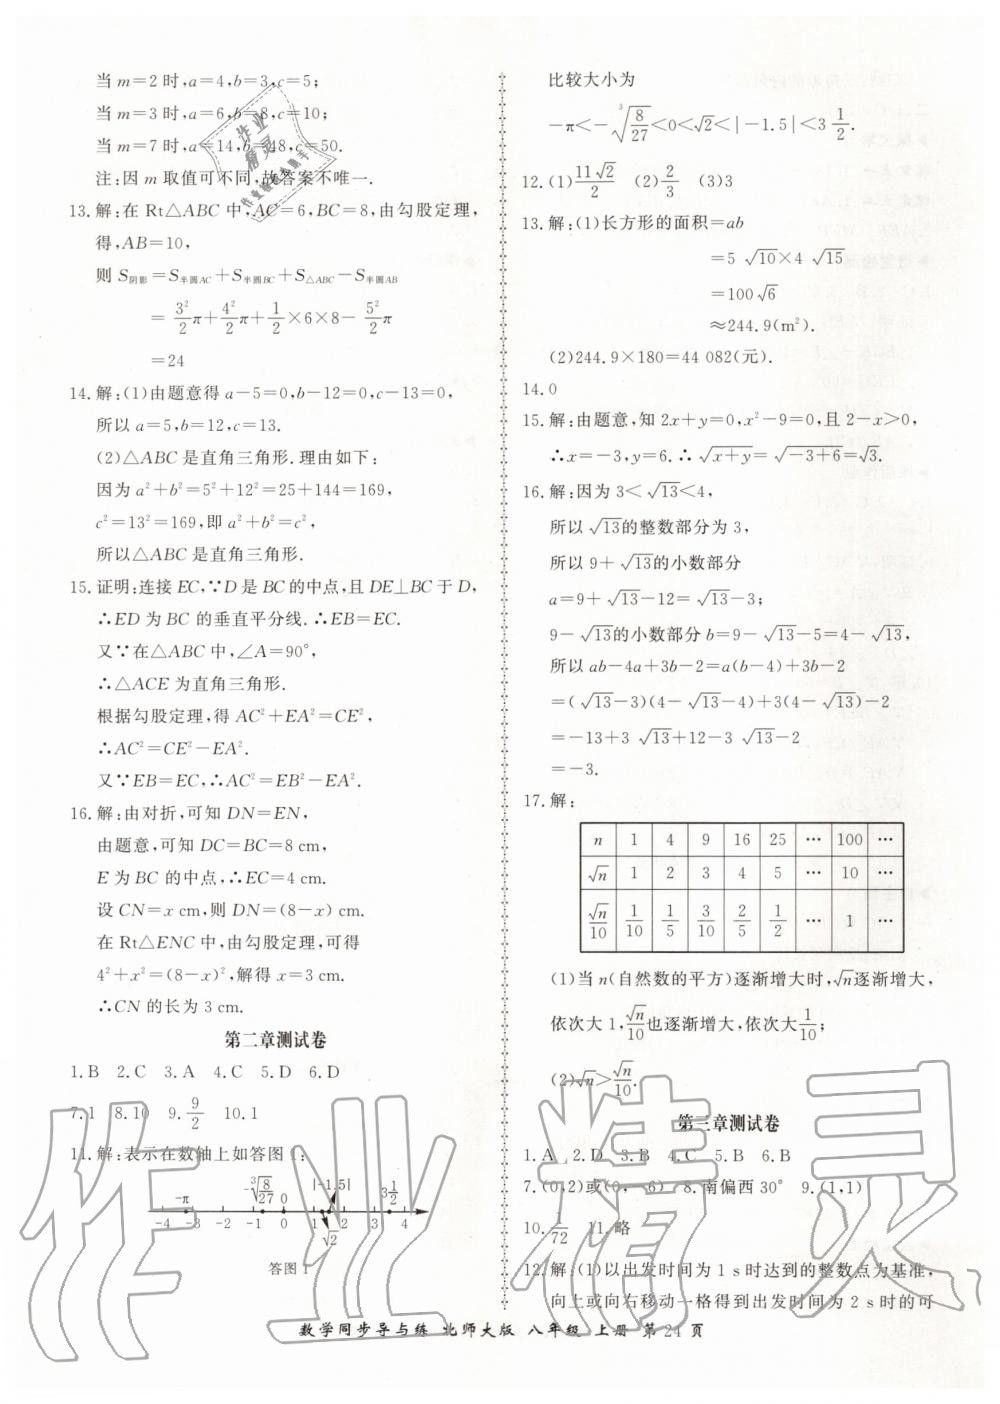 当m=2时,a=4,b=3,c=5;
当m=3时,a=6,b=8,c=10;
当m=7时,a=14,b=48,c=50.
注:因m取值可不同,故答案不唯一.
13.解:在Rt△ABC中,AC=6,BC=8,由勾股定理,
得,AB=10,
则S阴影=S半圆AC+S半圆BC+S△ABC-S半圆AB
=3²/2π+4²/2π+1/2×6×8-5²/2π
=24
14.解:(1)由题意得a-5=0,b-12=0,c-13=0,
所以a=5,b=12,c=13.
(2)△ABC是直角三角形.理由如下:
因为a²+b²=5²+12²=25+144=169,
c²=13²=169,即a²+b²=c²,
所以△ABC是直角三角形.
15.证明:连接EC,∵D是BC的中点,且DE⊥BC于D,
∴ED为BC的垂直平分线.∴EB=EC.
又∵在△ABC中,∠A=90°,
∴△ACE为直角三角形.
根据勾股定理,得AC²+EA²=CE²,
∴AC²=CE²-EA².
又∵EB=EC,∴AC²=EB²-EA².
16.解:由对折,可知DN=EN,
由题意,可知DC=BC=8 cm,
E为BC的中点,∴EC=4 cm.
设CN=x cm,则DN=(8-x) cm.
在Rt△ENC中,由勾股定理,可得
4²+x²=(8-x)²,解得x=3 cm.
∴CN的长为3 cm.
第二章测试卷
1.B 2.C 3.A 4.C 5.D 6.D
7.1 8.10 9.9/2 10.1
11.解:表示在数轴上如答图1:
-π -∛(8/27) 0 |-1.5| 3 1/2
-4 -3 -2 -1 0 1 2 3 4
√2
答图1
比较大小为
-π<-∛(8/27)<0<√2<|-1.5|<3 1/2.
12.(1)11√2/2 (2)2/3 (3)3
13.解:(1)长方形的面积=ab
=5√10×4√15
=100√6
≈244.9(m²).
(2)244.9×180=44 082(元).
14.0
15.解:由题意,知2x+y=0,x²-9=0,且2-x>0,
∴x=-3,y=6.∴√(x+y)=√(-3+6)=√3.
16.解:因为3<√13<4,
所以√13的整数部分为3,
所以9+√13的小数部分
a=9+√13-12=√13-3;
9-√13的小数部分b=9-√13-5=4-√13,
所以ab-4a+3b-2=a(b-4)+3b-2
=(√13-3)(4-√13-4)+3(4-√13)-2
=-13+3√13+12-3√13-2
=-3.
17.解:
n 1 4 9 16 25 … 100 …
√n 1 2 3 4 5 … 10 …
√n/10 1/10 1/5 3/10 2/5 1/2 … 1 …
(1)当n(自然数的平方)逐渐增大时,√n逐渐增大,
依次大1,√n/10也逐渐增大,依次大1/10;
(2)√n>√n/10.
第三章测试卷
1.A 2.D 3.B 4.C 5.B 6.B
7.(0,2)或(0,-6) 8.南偏西30° 9.(1,1)
10.1/72 11.略
12.解:(1)以出发时间为1 s时达到的整数点为基准,
向上或向右移动一格得到出发时间为2 s时的可
数学同步导与练 北师大版 八年级 上册 第24页
作业精灵